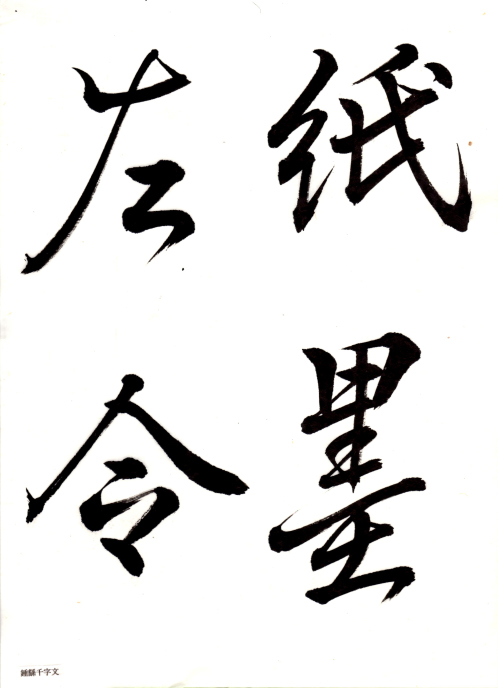 紙墨
左令
鍾繇千字文